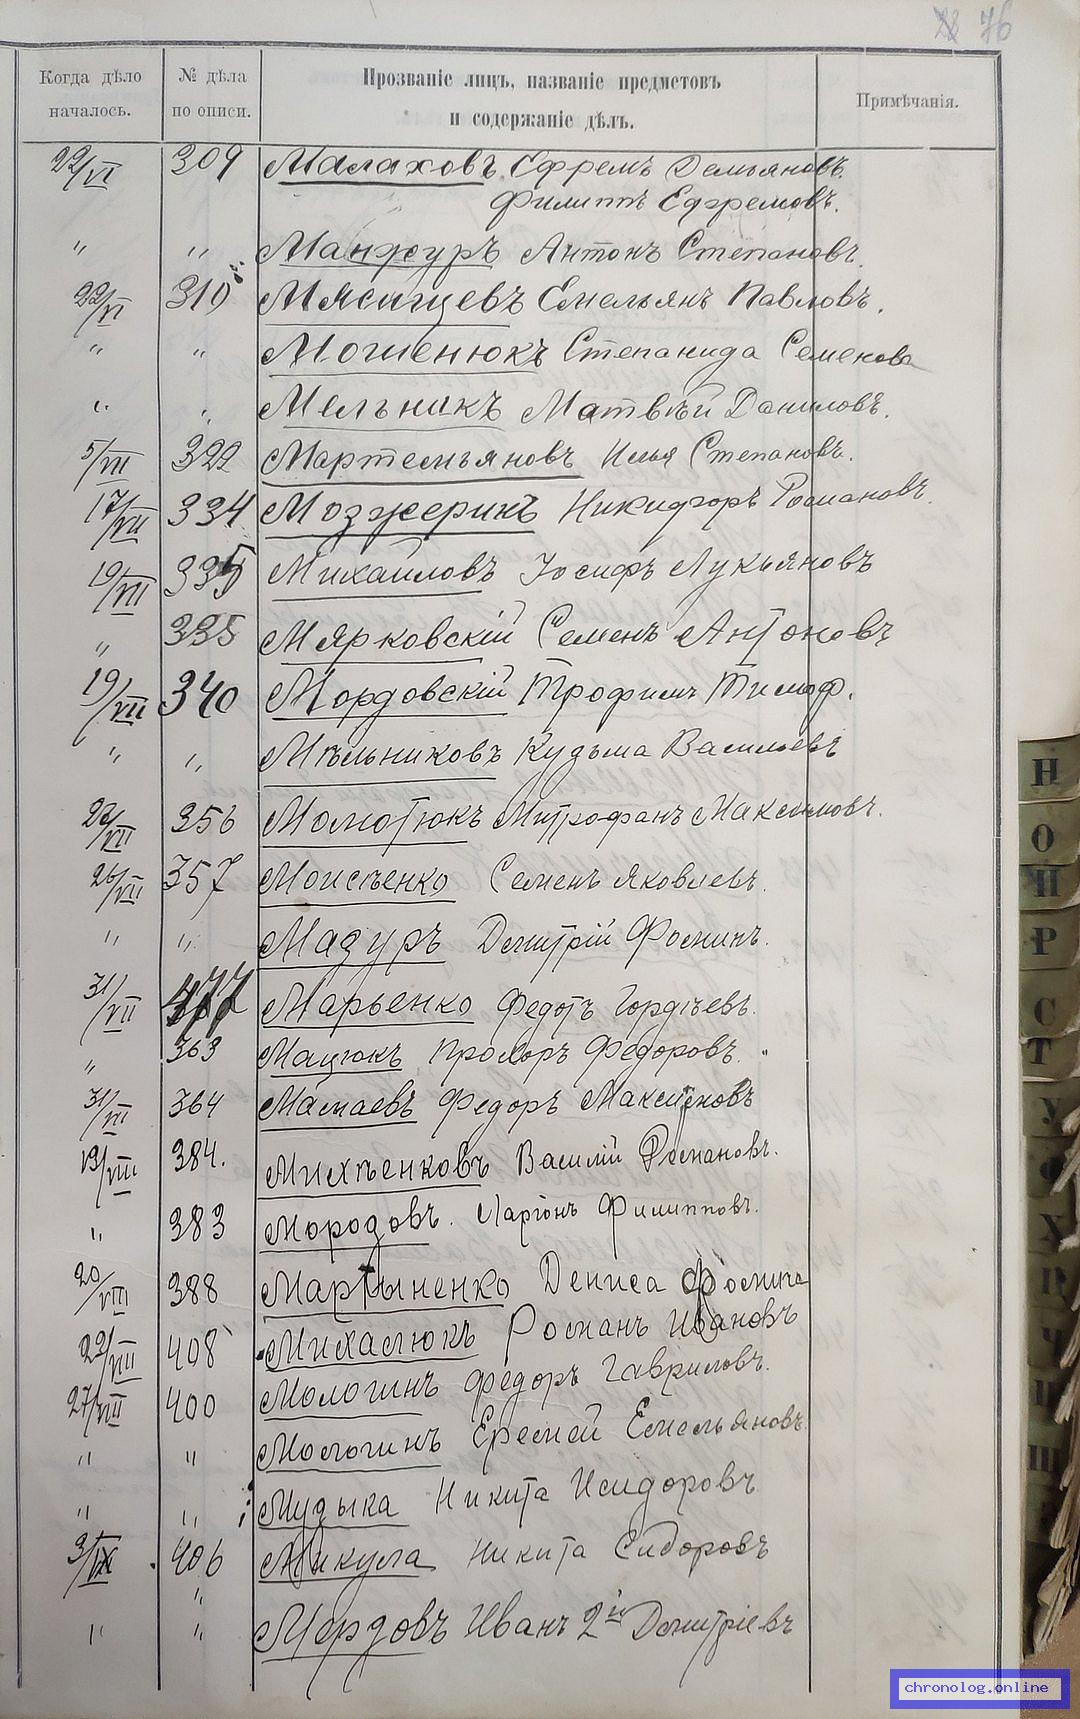 76
Когда дѣло началось.
№ дѣла по описи.
Прозваніе лицъ, названіе предметовъ и содержаніе дѣлъ.
Примѣчанія.
22/VI 309 Малаховъ Ефремъ Демьяновъ.
Филиппъ Ефремовъ.
" " Манжуръ Антонъ Степановъ.
22/VI 310 Мясищевъ Емельянъ Павловъ.
" " Мошенюкъ Степанида Семенова
" " Мельникъ Матвѣй Даниловъ.
5/VII 322 Мартемьяновъ Илья Степановъ.
17/VII 334 Мозжеринъ Никифоръ Романовъ.
19/VII 335 Михаиловъ Іосифъ Лукьяновъ
" 335 Мярковскій Семенъ Антоновъ
19/VII 340 Мордовскій Трофимъ Тимоф.
" " Мѣльниковъ Кузьма Васильевъ
22/VII 356 Молотюкъ Митрофанъ Максимовъ.
26/VII 357 Моисѣенко Семенъ Яковлевъ.
" " Мазуръ Дмитрій Фоминъ.
31/VII 377 Марьенко Федотъ Гордѣевъ.
" 363 Мацюкъ Прохоръ Федоровъ.
31/VII 364 Мамаевъ Федоръ Максимовъ
13/VIII 384. Михѣенковъ Василій Романовъ.
" 383 Мородовъ. Ларіонъ Филипповъ.
20/VIII 388 Мартыненко Дениса Фомича
22/VIII 408 Михалюкъ Романъ Ивановъ
27/VIII 400 Мологинъ Федоръ Гавриловъ.
" " Мологинъ Еремей Емельяновъ.
" " Мудыка Никита Исидоровъ
3/IX 406 Микула Никита Сидоровъ
"
" " Мердовъ Иванъ 2й Дмитріевъ
Н
О
П
Р
С
Т
У
Ф
Х
Ц
Ч
Ш
chronolog.online